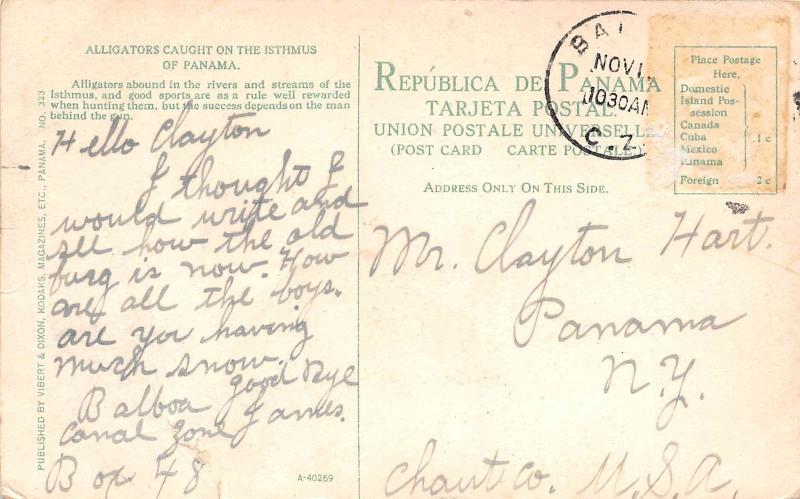 ALLIGATORS CAUGHT ON THE ISTHMUS
OF PANAMA.
Alligators abound in the rivers and streams of the
Isthmus, and good sports are as a rule well rewarded
when hunting them, but the success depends on the man
behind the gun.
Hello Clayton
I thought I
would write and
see how the old
burg is now. How
are all the boys.
are you having
much snow.
good Bye
Balboa James.
Canal Zone
Box 48
PUBLISHED BY VIBERT & DIXON, KODAKS, MAGAZINES, ETC., PANAMA. NO. 323
A-40269
REPÚBLICA DE PANAMÁ
TARJETA POSTAL.
UNION POSTALE UNIVERSELLE
(POST CARD CARTE POSTALE)
ADDRESS ONLY ON THIS SIDE.
BAL
NOV 1
1030AM
C.Z.
Place Postage
Here,
Domestic
Island Pos-
session
Canada
Cuba 1 c
Mexico
Panama
Foreign 2 c
Mr. Clayton Hart.
Panama
N.Y.
Chaut Co. U.S.A.